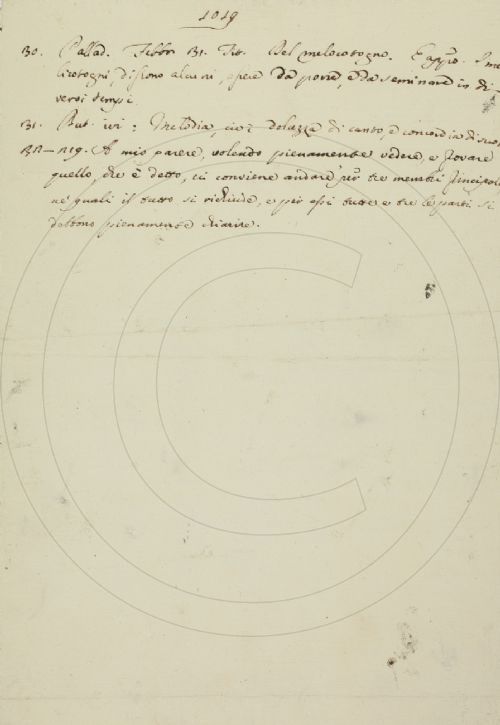 1019
30. Pallad. Febbr. 31. Tit. Del melocotogno. E appro. I me
licotogni, discono alcuni, essere da porre, e da seminare in di-
versi tempi.
31. But. ivi: Melodia, cioè dolcezza di canto, e concordia di suo
A mio parere, volendo pienamente vedere, e trovare
quello, che è detto, ci conviene andare per tre membri principali
ne' quali il tutto si richiude, e per essi tutte e tre le parti si
debbono pienamente chiarire.